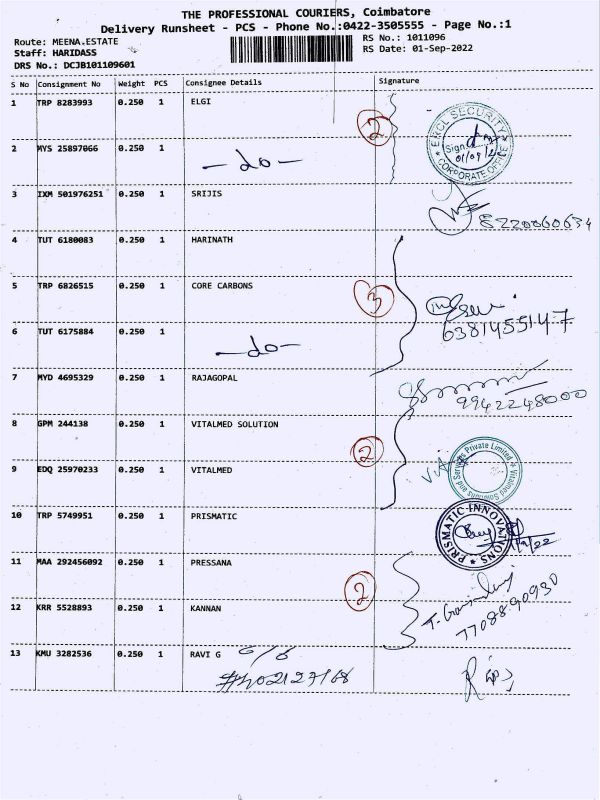 THE PROFESSIONAL COURIERS, Coimbatore
Delivery Runsheet - PCS - Phone No.:0422-3505555 - Page No.:1
Route: MEENA.ESTATE
RS No.: 1011096
Staff: HARIDASS
RS Date: 01-Sep-2022
DRS No.: DCJB101109601
S No Consignment No Weight PCS Consignee Details Signature
1 TRP 8283993 0.250 1 ELGI
2
EKCL SECURITY
Sign.
01/09/22
CORPORATE OFFICE
2 MYS 25897066 0.250 1 -do-
3 IXM 501976251 0.250 1 SRIJIS
8220060634
4 TUT 6180083 0.250 1 HARINATH
5 TRP 6826515 0.250 1 CORE CARBONS
3
6381455147
6 TUT 6175884 0.250 1 -do-
7 MYD 4695329 0.250 1 RAJAGOPAL
9942248000
8 GPM 244138 0.250 1 VITALMED SOLUTION
2
9 EDQ 25970233 0.250 1 VITALMED
Vitalmed Solutions and Services Private Limited
10 TRP 5749951 0.250 1 PRISMATIC
PRISMATIC INNOVATIONS
11 MAA 292456092 0.250 1 PRESSANA
2
12 KRR 5528893 0.250 1 KANNAN
7708890930
13 KMU 3282536 0.250 1 RAVI G